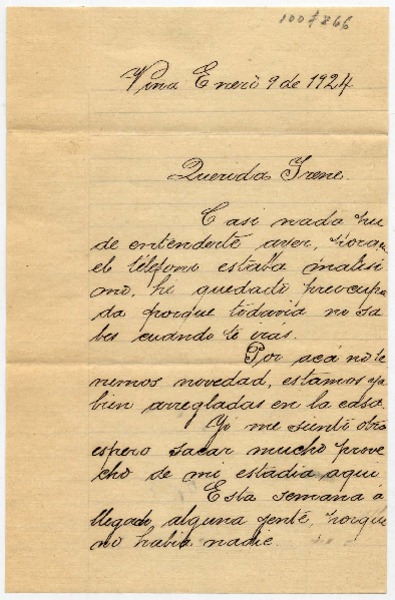 1007866
Viña Enero 9 de 1924
Querida Irene
Casi nada pu
de entenderte ayer, porque
el télefono estaba malisi
mo, he quedado preocupa
da porque todavia no sa
bes cuando te irás.
Por acá no te
nemos novedad, estamos ya
bien arregladas en la casa.
Yo me siento otra
espero sacar mucho prove
cho de mi estadia aqui
Esta semana á
llegado alguna jente, porque
no habia nadie.